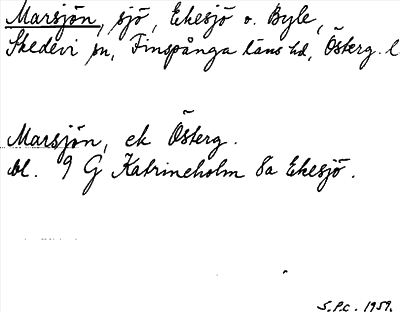 Marsjön, sjö, Ekesjö o. Byle,
Skedevi sn, Finspånga läns hd, Österg. l
Marsjön, ek Österg.
bl. 9 G Katrineholm 8a Ekesjö.
S.P.C. 1959.